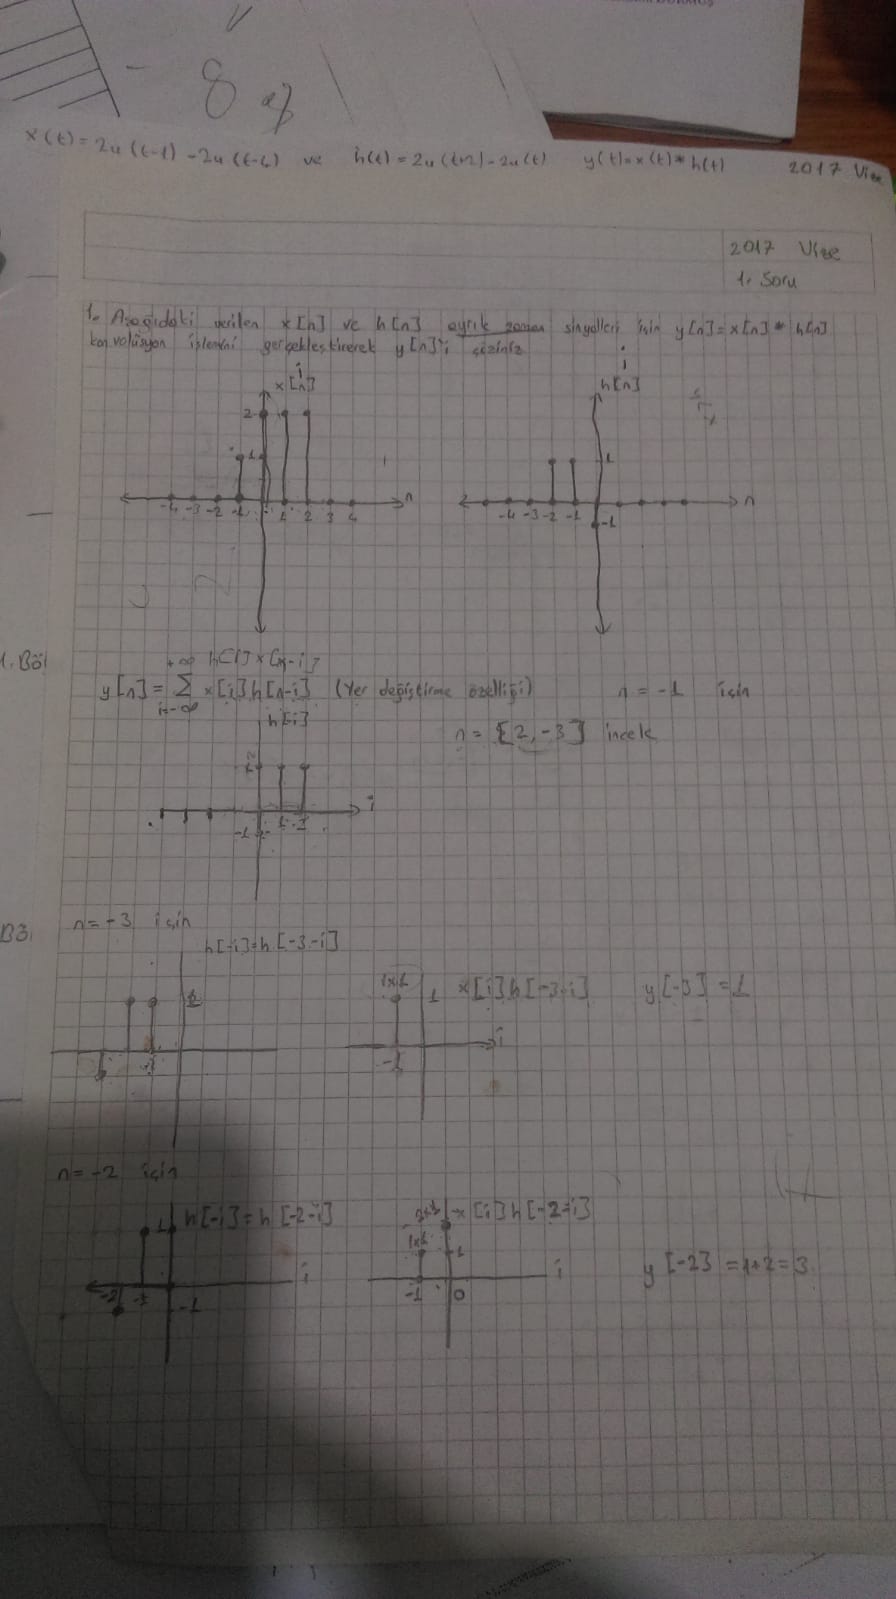 8
x(t) = 2u(t-1) - 2u(t-4) ve h(t) = 2u(t+2) - 2u(t) y(t) = x(t) * h(t) 2017 Vize
2017 Vize
1. Soru
1. Aşağıdaki verilen x[n] ve h[n] ayrık zaman sinyalleri için y[n] = x[n] * h[n]
konvolüsyon işlemini gerçekleştirerek y[n]'i çözünüz
i i
x[n] h[n]
2
1 1
-4 -3 -2 -1 1 2 3 4 n -4 -3 -2 -1 n
-1
h[i] x[n-i]
y[n] = +∞ Σ i=-∞ x[i] h[n-i] (Yer değiştirme özelliği) n = -1 için
h[-i] n = [2, -3] incele
i
-1 1 2
n = -3 için
h[-i] = h[-3-i]
1x1 1 x[i] h[-3-i] y[-3] = 1
1 i
-1 -1
n = -2 için
1 h[-i] = h[-2-i] 2x1 x[i] h[-2-i]
1x1 1
i i y[-2] = 1+2 = 3
-2 -1 -1 -1 0